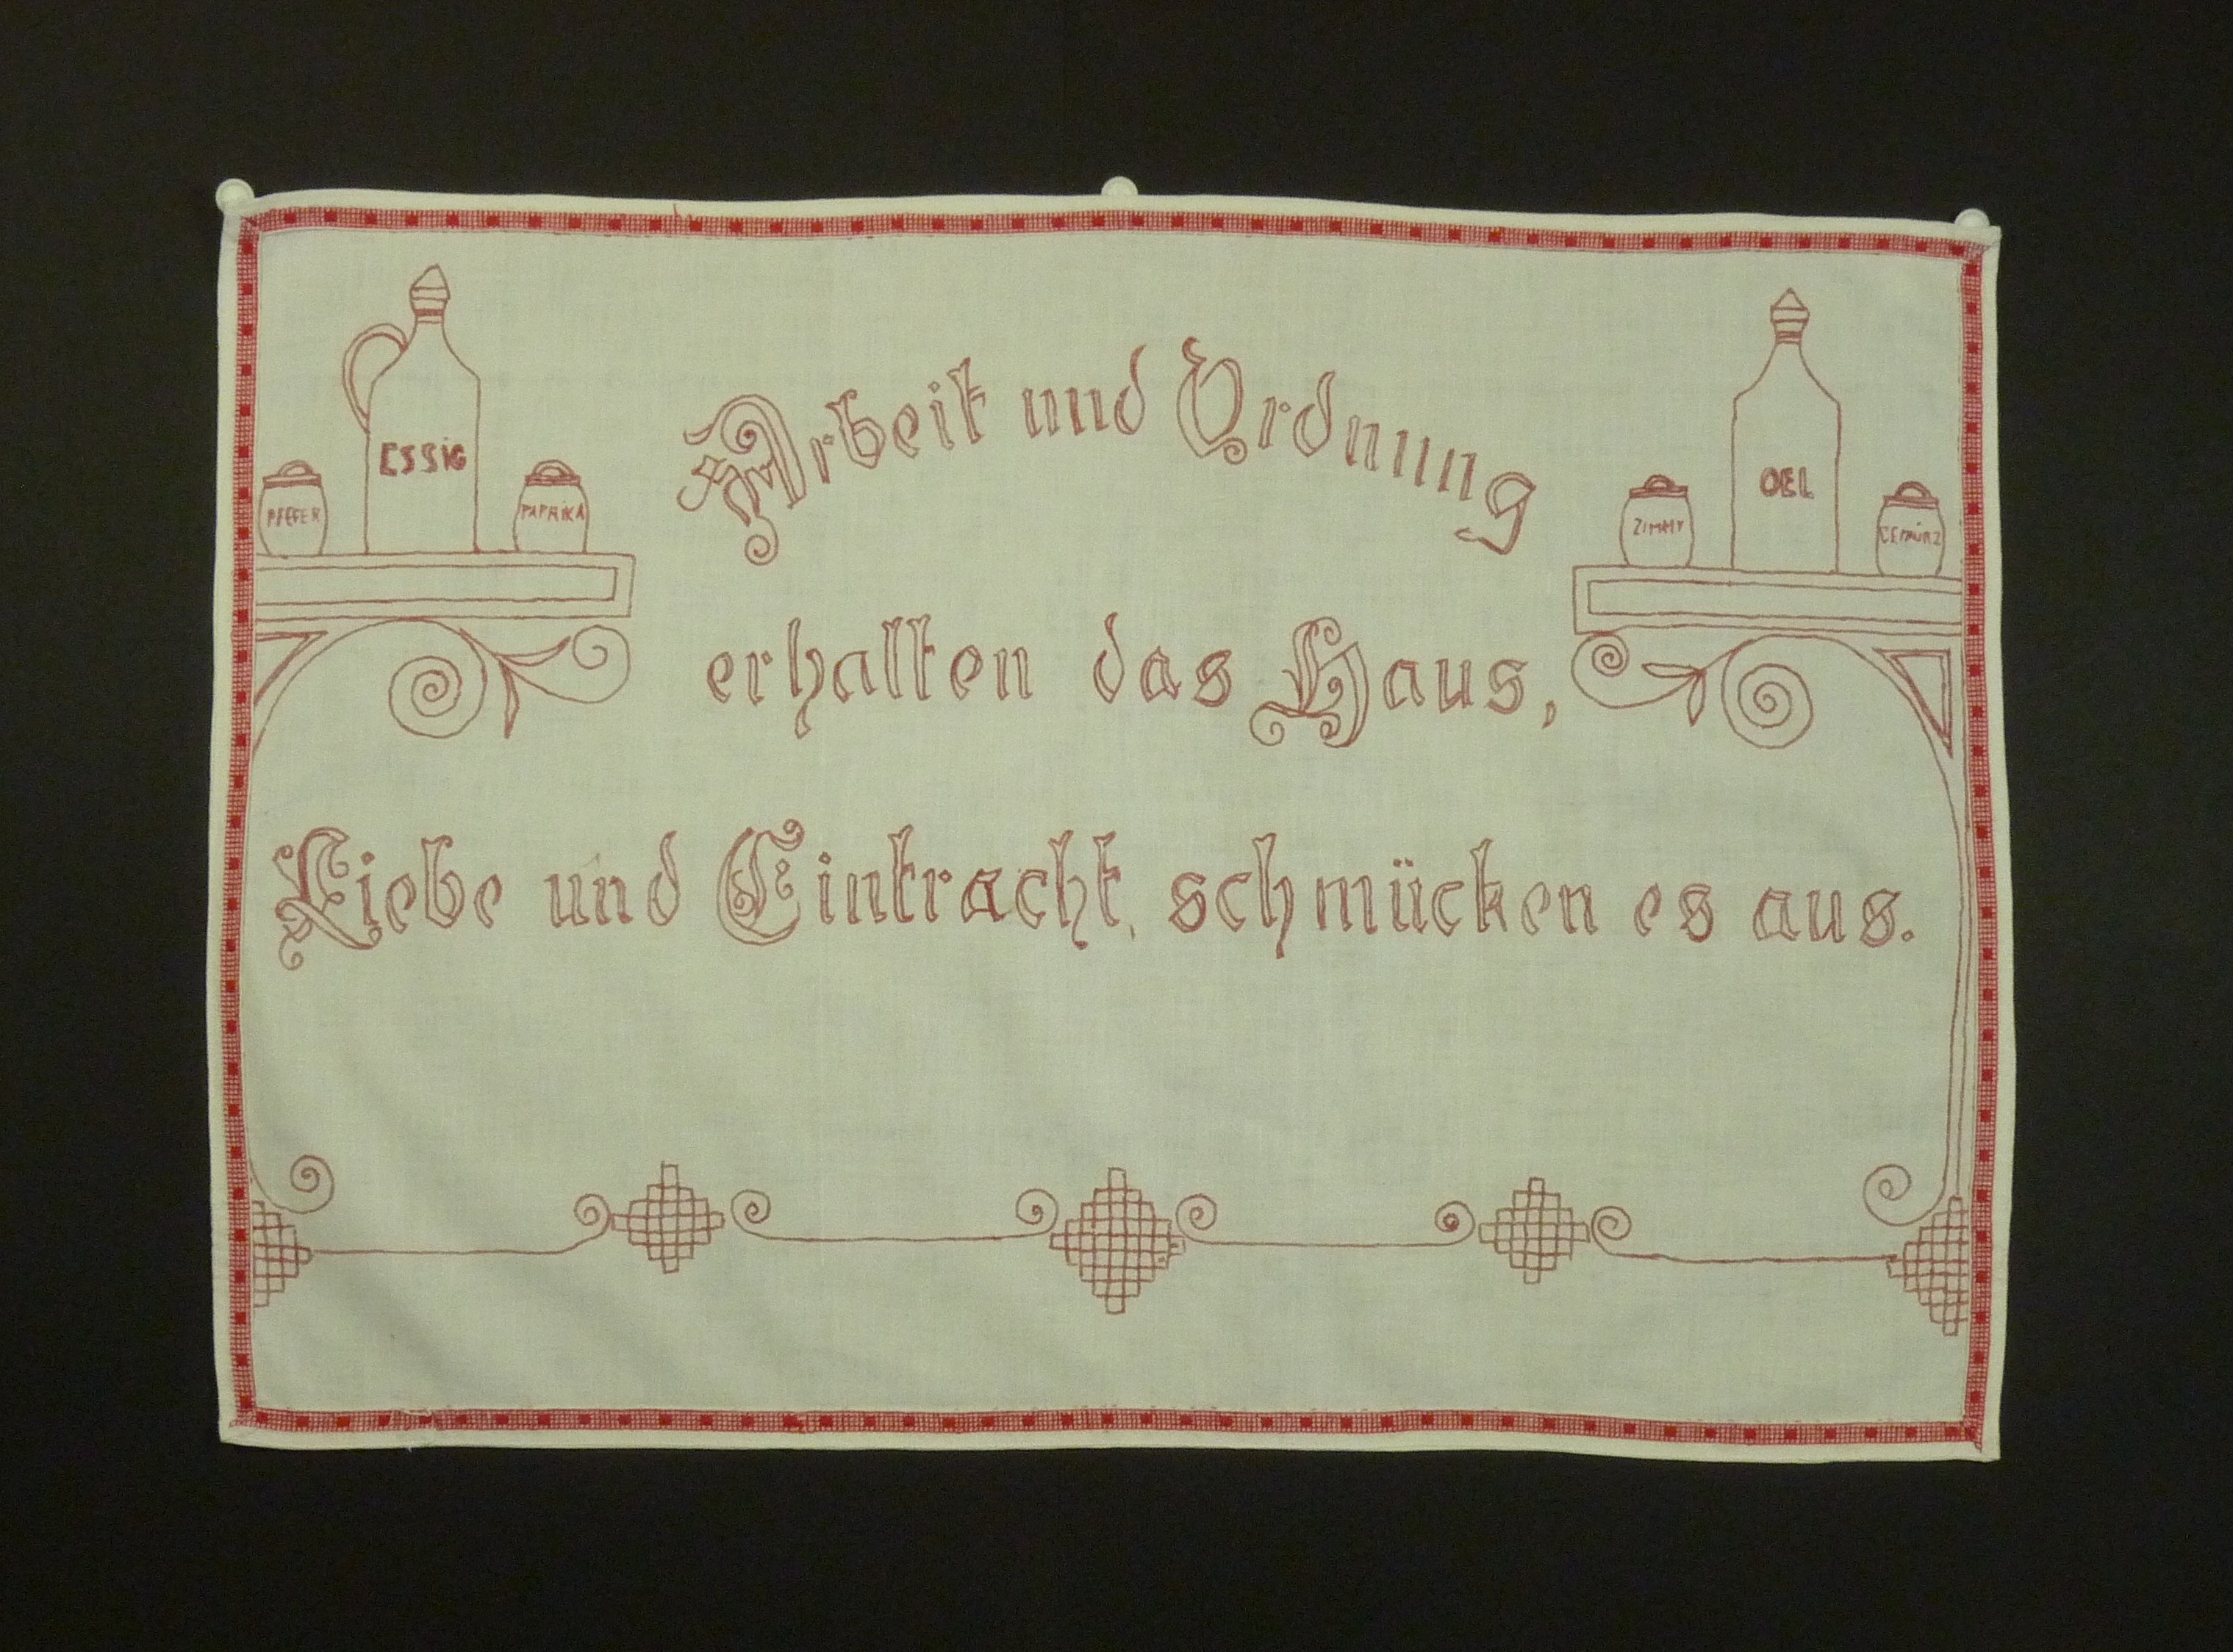 ESSIG
PFEFFER
PAPRIKA
OEL
ZIMMT
GEWÜRZ
Arbeit und Ordnung
erhalten das Haus,
Liebe und Eintracht, schmücken es aus.